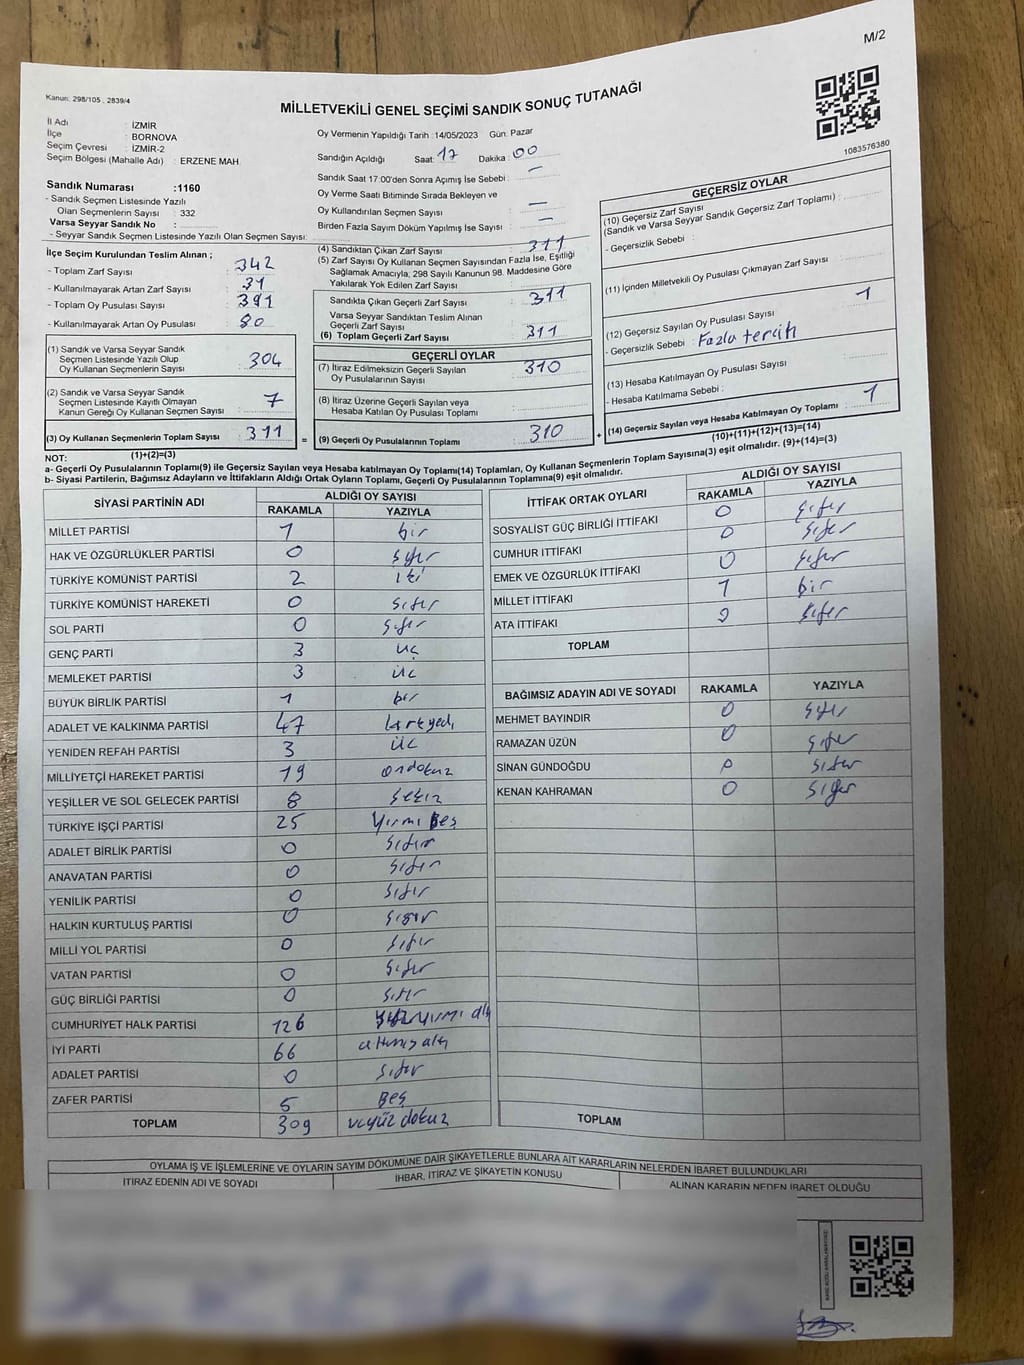 M/2
Kanun: 298/105 , 2839/4
MİLLETVEKİLİ GENEL SEÇİMİ SANDIK SONUÇ TUTANAĞI
1083576380
İl Adı : İZMİR
İlçe : BORNOVA
Seçim Çevresi : İZMİR-2
Seçim Bölgesi (Mahalle Adı) : ERZENE MAH.
Sandık Numarası :1160
- Sandık Seçmen Listesinde Yazılı
Olan Seçmenlerin Sayısı : 332
Varsa Seyyar Sandık No :
- Seyyar Sandık Seçmen Listesinde Yazılı Olan Seçmen Sayısı:
İlçe Seçim Kurulundan Teslim Alınan ;
- Toplam Zarf Sayısı : 342
- Kullanılmayarak Artan Zarf Sayısı : 31
- Toplam Oy Pusulası Sayısı : 391
- Kullanılmayarak Artan Oy Pusulası : 80
(1) Sandık ve Varsa Seyyar Sandık
Seçmen Listesinde Yazılı Olup
Oy Kullanan Seçmenlerin Sayısı : 304
(2) Sandık ve Varsa Seyyar Sandık
Seçmen Listesinde Kayıtlı Olmayan
Kanun Gereği Oy Kullanan Seçmen Sayısı : 7
(3) Oy Kullanan Seçmenlerin Toplam Sayısı : 311
(1)+(2)=(3)
Oy Vermenin Yapıldığı Tarih :14/05/2023 Gün: Pazar
Sandığın Açıldığı Saat: 17 Dakika : 00
Sandık Saat 17:00'den Sonra Açımış İse Sebebi : –
Oy Verme Saati Bitiminde Sırada Bekleyen ve
Oy Kullandırılan Seçmen Sayısı : –
Birden Fazla Sayım Döküm Yapılmış İse Sayısı : –
(4) Sandıktan Çıkan Zarf Sayısı : 311
(5) Zarf Sayısı Oy Kullanan Seçmen Sayısından Fazla İse, Eşitliği
Sağlamak Amacıyla, 298 Sayılı Kanunun 98. Maddesine Göre
Yakılarak Yok Edilen Zarf Sayısı :
Sandıkta Çıkan Geçerli Zarf Sayısı : 311
Varsa Seyyar Sandıktan Teslim Alınan
Geçerli Zarf Sayısı :
(6) Toplam Geçerli Zarf Sayısı : 311
GEÇERLİ OYLAR
(7) İtiraz Edilmeksizin Geçerli Sayılan
Oy Pusulalarının Sayısı : 310
(8) İtiraz Üzerine Geçerli Sayılan veya
Hesaba Katılan Oy Pusulası Toplamı :
= (9) Geçerli Oy Pusulalarının Toplamı : 310 +
GEÇERSİZ OYLAR
(10) Geçersiz Zarf Sayısı
(Sandık ve Varsa Seyyar Sandık Geçersiz Zarf Toplamı) :
- Geçersizlik Sebebi :
(11) İçinden Milletvekili Oy Pusulası Çıkmayan Zarf Sayısı :
(12) Geçersiz Sayılan Oy Pusulası Sayısı : 1
- Geçersizlik Sebebi : Fazla tercih
(13) Hesaba Katılmayan Oy Pusulası Sayısı :
- Hesaba Katılmama Sebebi :
(14) Geçersiz Sayılan veya Hesaba Katılmayan Oy Toplamı : 1
(10)+(11)+(12)+(13)=(14)
NOT:
a- Geçerli Oy Pusulalarının Toplamı(9) ile Geçersiz Sayılan veya Hesaba katılmayan Oy Toplamı(14) Toplamları, Oy Kullanan Seçmenlerin Toplam Sayısına(3) eşit olmalıdır. (9)+(14)=(3)
b- Siyasi Partilerin, Bağımsız Adayların ve İttifakların Aldığı Ortak Oyların Toplamı, Geçerli Oy Pusulalarının Toplamına(9) eşit olmalıdır.
SİYASİ PARTİNİN ADI ALDIĞI OY SAYISI
RAKAMLA YAZIYLA
MİLLET PARTİSİ 1 bir
HAK VE ÖZGÜRLÜKLER PARTİSİ 0 sıfır
TÜRKİYE KOMÜNİST PARTİSİ 2 iki
TÜRKİYE KOMÜNİST HAREKETİ 0 sıfır
SOL PARTİ 0 sıfır
GENÇ PARTİ 3 üç
MEMLEKET PARTİSİ 3 üç
BÜYÜK BİRLİK PARTİSİ 1 bir
ADALET VE KALKINMA PARTİSİ 47 kırkyedi
YENİDEN REFAH PARTİSİ 3 üç
MİLLİYETÇİ HAREKET PARTİSİ 19 ondokuz
YEŞİLLER VE SOL GELECEK PARTİSİ 8 sekiz
TÜRKİYE İŞÇİ PARTİSİ 25 Yirmi beş
ADALET BİRLİK PARTİSİ 0 sıfır
ANAVATAN PARTİSİ 0 sıfır
YENİLİK PARTİSİ 0 sıfır
HALKIN KURTULUŞ PARTİSİ 0 sıfır
MİLLİ YOL PARTİSİ 0 sıfır
VATAN PARTİSİ 0 sıfır
GÜÇ BİRLİĞİ PARTİSİ 0 sıfır
CUMHURİYET HALK PARTİSİ 126 yüzyirmi altı
İYİ PARTİ 66 altmış altı
ADALET PARTİSİ 0 sıfır
ZAFER PARTİSİ 5 Beş
TOPLAM 309 üçyüz dokuz
İTTİFAK ORTAK OYLARI ALDIĞI OY SAYISI
RAKAMLA YAZIYLA
SOSYALİST GÜÇ BİRLİĞİ İTTİFAKI 0 sıfır
CUMHUR İTTİFAKI 0 sıfır
EMEK VE ÖZGÜRLÜK İTTİFAKI 0 sıfır
MİLLET İTTİFAKI 1 bir
ATA İTTİFAKI 0 sıfır
TOPLAM
BAĞIMSIZ ADAYIN ADI VE SOYADI RAKAMLA YAZIYLA
MEHMET BAYINDIR 0 sıfır
RAMAZAN ÜZÜN 0 sıfır
SİNAN GÜNDOĞDU 0 sıfır
KENAN KAHRAMAN 0 sıfır
TOPLAM
OYLAMA İŞ VE İŞLEMLERİNE VE OYLARIN SAYIM DÖKÜMÜNE DAİR ŞİKAYETLERLE BUNLARA AİT KARARLARIN NELERDEN İBARET BULUNDUKLARI
İTİRAZ EDENİN ADI VE SOYADI İHBAR, İTİRAZ VE ŞİKAYETİN KONUSU ALINAN KARARIN NEDEN İBARET OLDUĞU